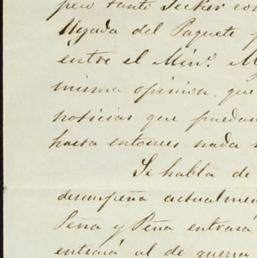 pero tanto
llegada del Paquete
entre el Min.º M
misma opinion, que
noticias que puedan
hasta entonces nada
Se habla de
desempeña actualmen
Peña y Peña entrará
entrará al de guerra